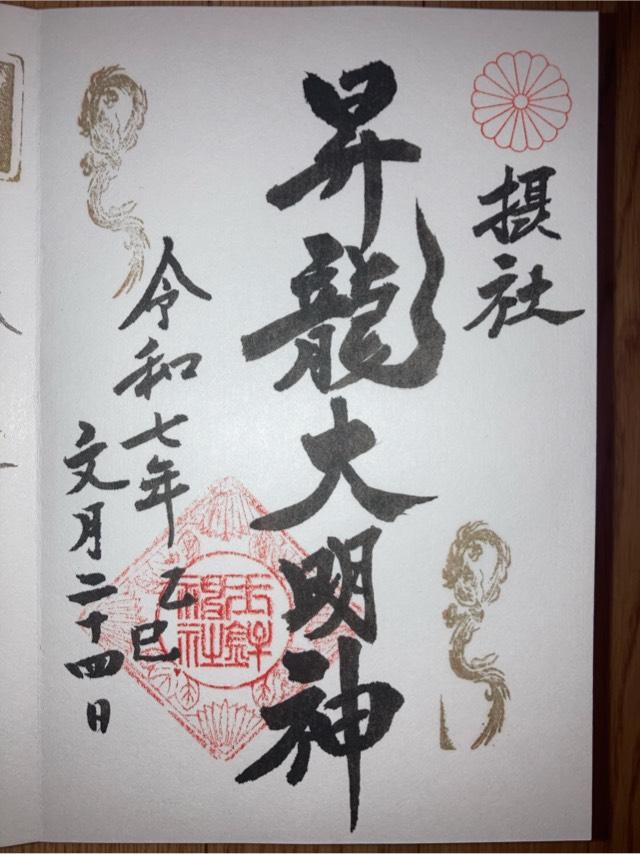 摂社
昇龍大明神
令和七年乙巳
文月二十四日
玉鉾
神社